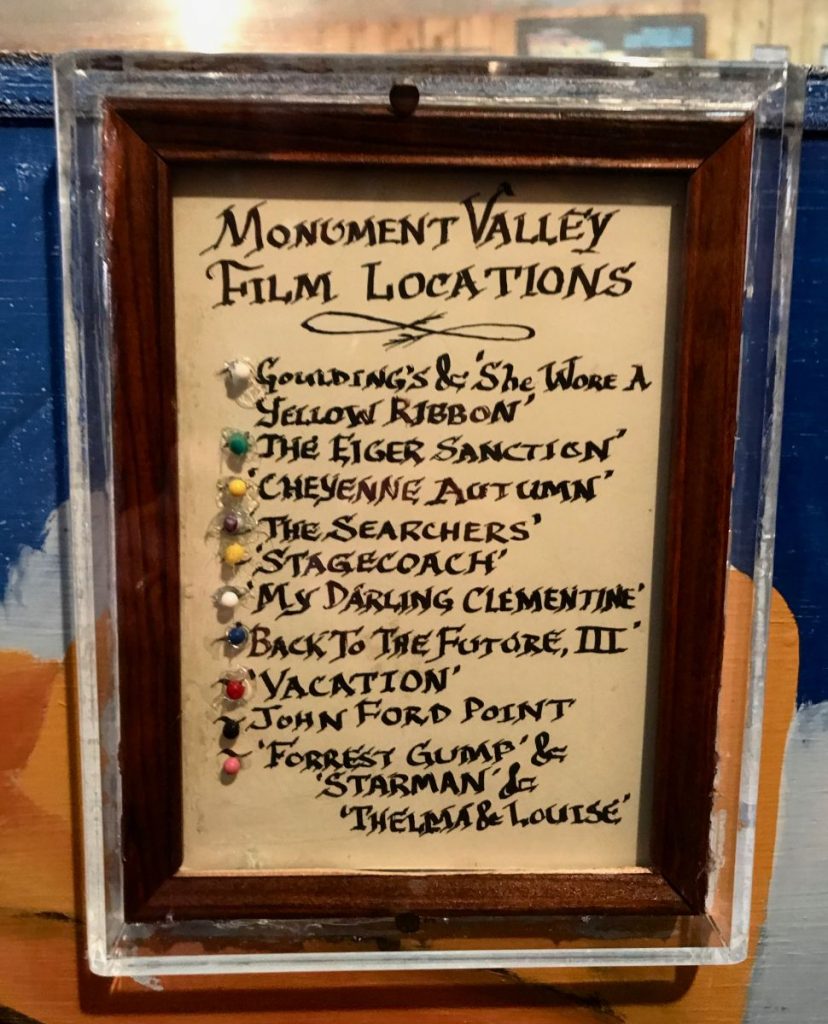 MONUMENT VALLEY
FILM LOCATIONS
GOULDING'S & 'SHE WORE A
YELLOW RIBBON'
'THE EIGER SANCTION'
'CHEYENNE AUTUMN'
'THE SEARCHERS'
'STAGECOACH'
'MY DARLING CLEMENTINE'
'BACK TO THE FUTURE, III'
'VACATION'
JOHN FORD POINT
'FORREST GUMP' &
'STARMAN' &
'THELMA & LOUISE'